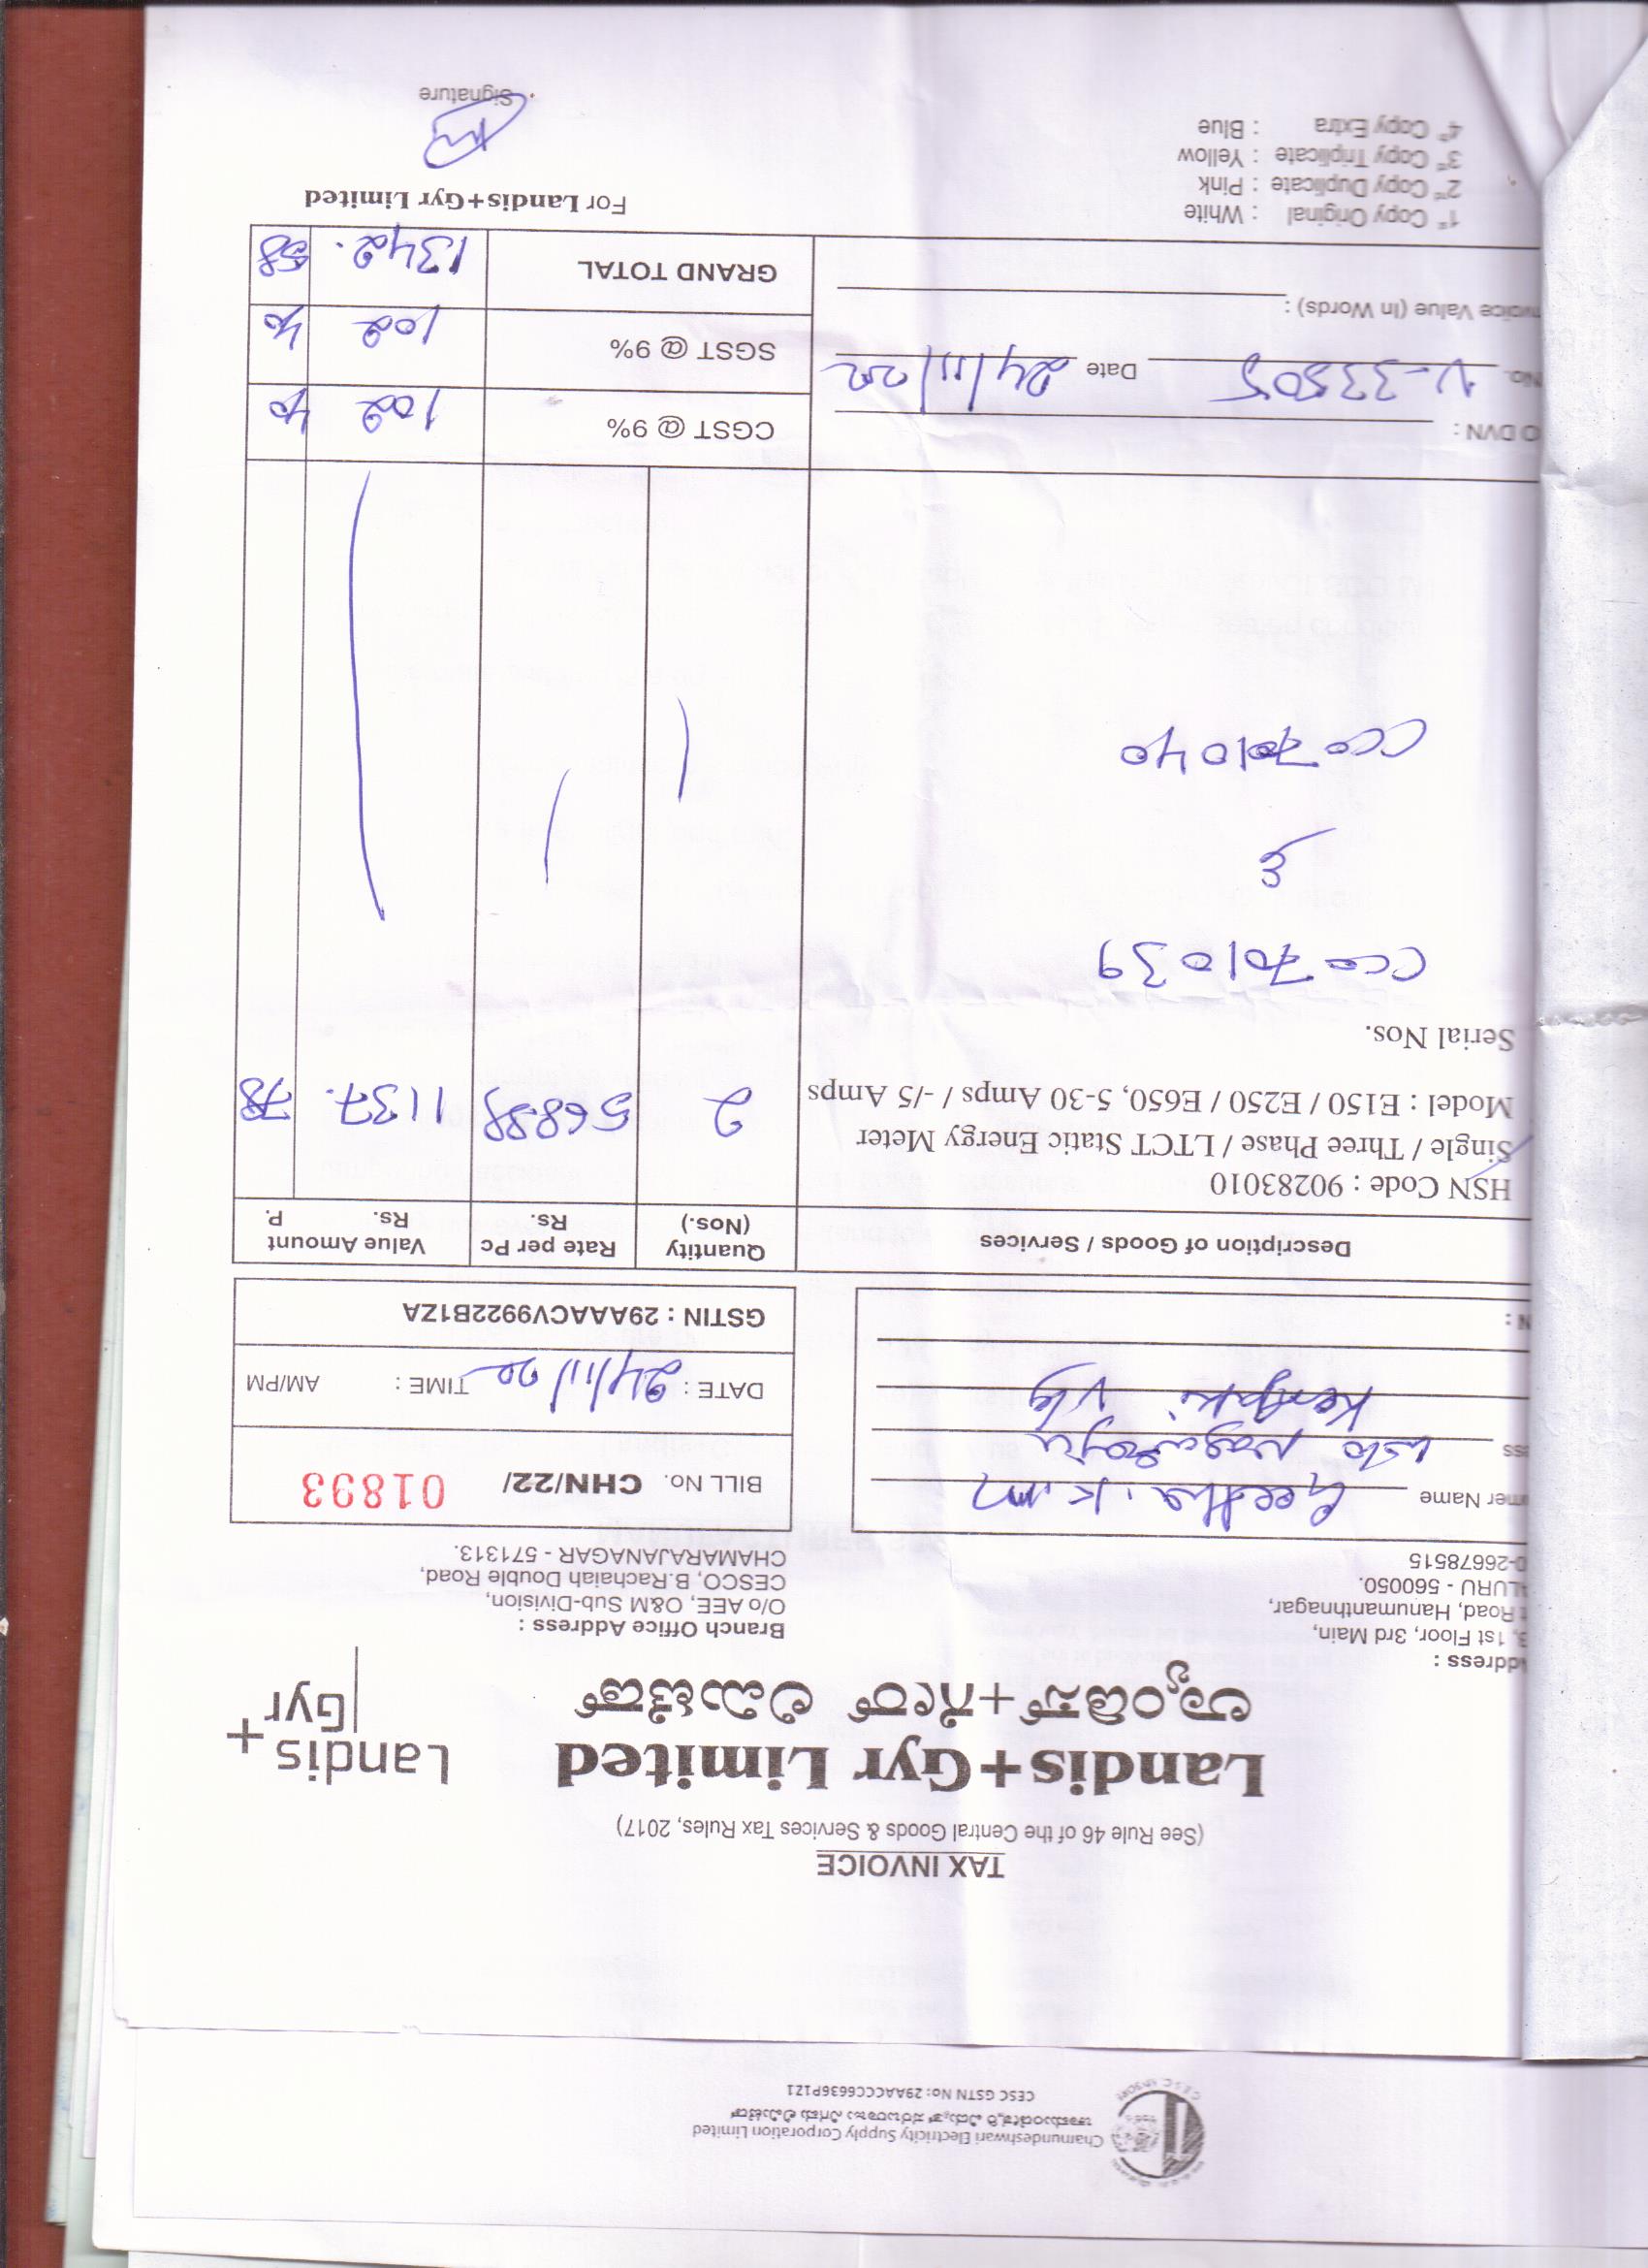 TAX INVOICE
(See Rule 46 of the Central Goods & Services Tax Rules, 2017)
Landis+Gyr Limited
ಲ್ಯಾಂಡಿಸ್+ಗೀರ್ ಲಿಮಿಟೆಡ್
Landis+
Gyr
ddress :
3, 1st Floor, 3rd Main,
t Road, Hanumanthnagar,
ALURU - 560050.
0-26678515
Branch Office Address :
O/o AEE, O&M Sub-Division,
CESCO, B.Rachaiah Double Road,
CHAMARAJANAGAR - 571313.
omer Name Geetha.K.M
ess w/o Nagaraju
Kengaki Vlg
N :
BILL No. CHN/22/ 01893
DATE : 24/11/22 TIME : AM/PM
GSTIN : 29AAACV9922B1ZA
Description of Goods / Services Quantity (Nos.) Rate per Pc Rs. Value Amount Rs. P.
HSN Code : 90283010
Single / Three Phase / LTCT Static Energy Meter
Model : E150 / E250 / E650, 5-30 Amps / -/5 Amps 2 568.89 1137. 78
Serial Nos.
CC0701039
&
CC0701040
O DVN :
CGST @ 9% 102 40
No. N-33505 Date 24/11/22
SGST @ 9% 102 40
nvoice Value (In Words) :
GRAND TOTAL 1342. 58
1st Copy Original : White
2nd Copy Duplicate : Pink
3rd Copy Triplicate : Yellow
4th Copy Extra : Blue
For Landis+Gyr Limited
Signature
Chamundeshwari Electricity Supply Corporation Limited
ಚಾಮುಂಡೇಶ್ವರಿ ವಿದ್ಯುತ್ ಸರಬರಾಜು ನಿಗಮ ಲಿಮಿಟೆಡ್
CESC GSTN No: 29AACCC6636P1Z1